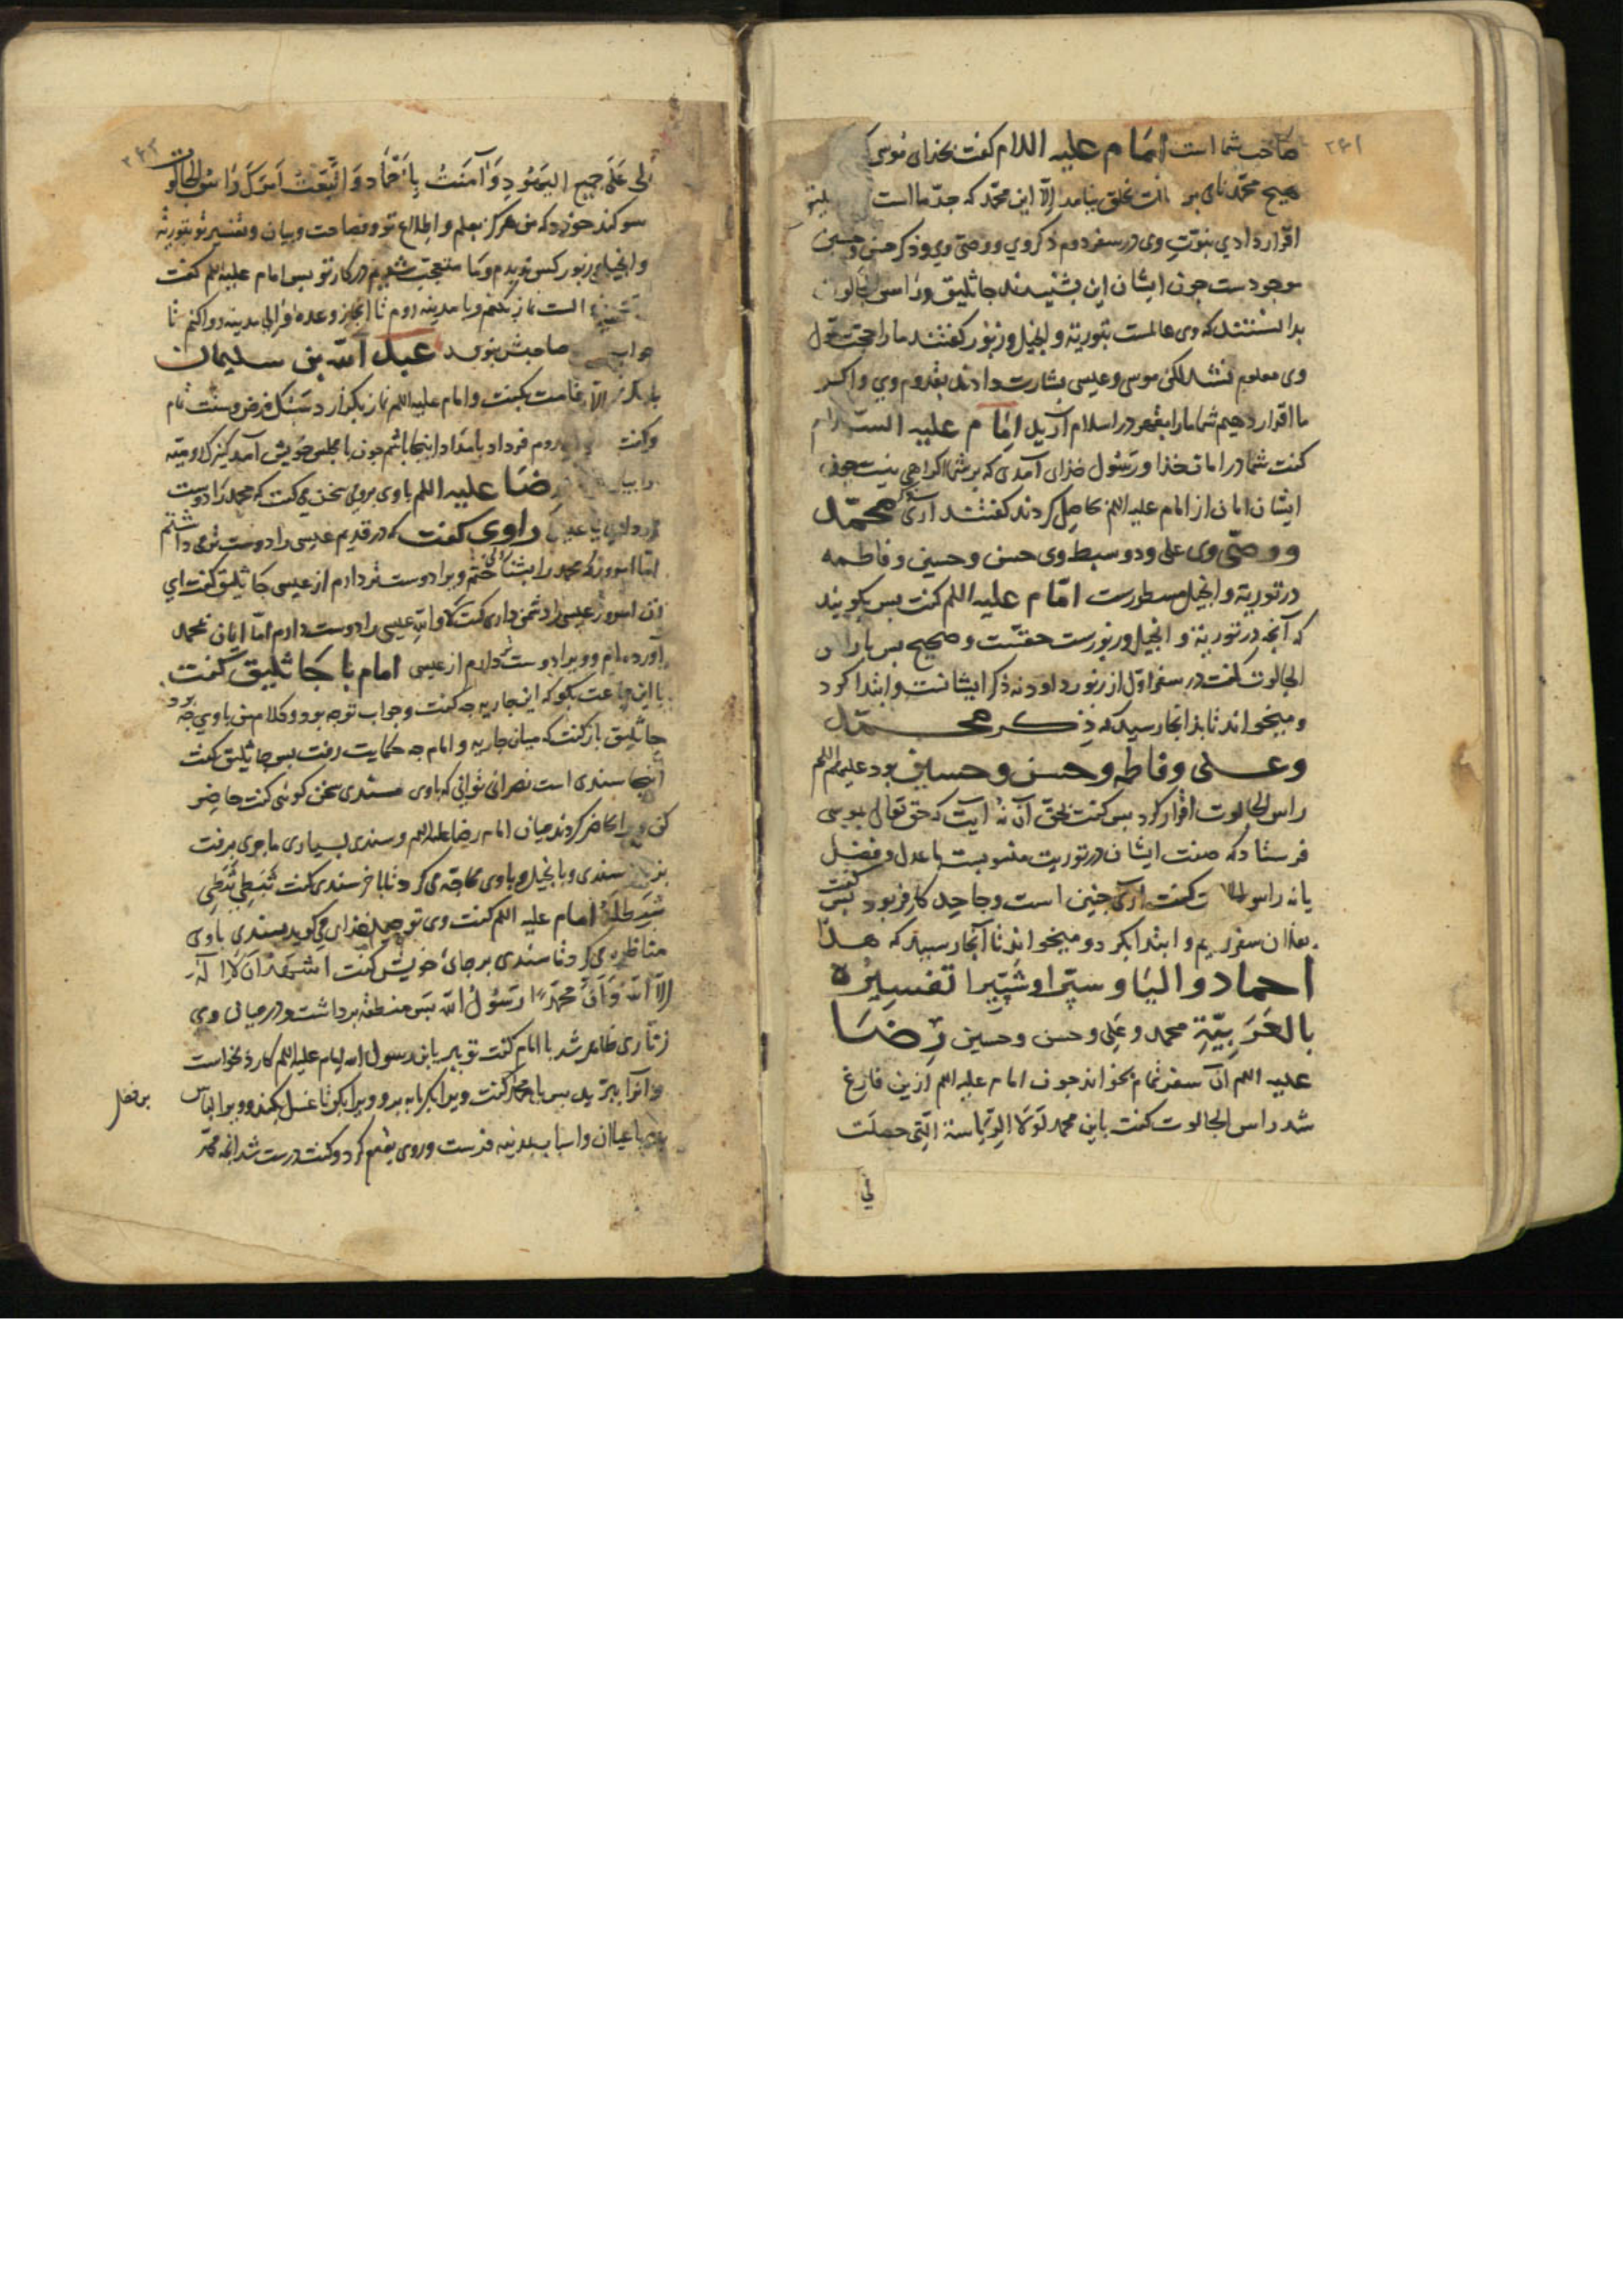 ۲۶۱
صاحب شما است امام علیه السلام گفت بخدای موسی که
هیچ محمد نامی بخلق نیامد الّا این محمد که جدّ ما است
اقرار دادی بنبوّت وی در سفر دوم ذکر وی و وصیّ وی و ذکر حسن و حسین
موجودست چون ایشان این بشنیدند جاثلیق و راس الجالوت
بدانستند که وی عالمست بتوریة و انجیل و زبور گفتند ما را حجت قول
وی معلوم نشد لکن موسی و عیسی بشارت دادند بقدوم وی و اگر
ما اقرار دهیم شما ما را بقهر در اسلام آرید امام علیه السلام
گفت شما در امان خدا و رسول خدای آمدی که بر شما اکراهی نیست چون
ایشان امان از امام علیه السلم حاصل کردند گفتند آری ذکر محمّد
و وصیّ وی علی و دو سبط وی حسن و حسین و فاطمه
در توریة و انجیل مسطورست امّام علیه السلم گفت پس بگویند
که آنچه در توریة و انجیل و زبورست حقست و صحیح پس با راس
الجالوت گفت در سفر اوّل از زبور داود نه ذکر ایشانست و ابتدا کرد
و میخواند تا بدانجا رسید که ذکر محمّد
و علی و فاطمه و حسن و حسین بود علیهم السلم
راس الجالوت اقرار کرد پس گفت بحقّ آن نُه آیت که حق تعالی بموسی
فرستاد که صفت ایشان در توریت منسوبست با عدل و فضل
یا نه راس الجالوت گفت آری چنین است و جاحد کافر بود پس گفت
سفر و ابتدا بکرد و میخواند تا آنجا رسید که هذا
احماد و الیا و ستّرا و شتّیرا تفسیره
بالعَرَبیّةِ محمد و علی و حسن و حسین رضا
علیه السلم آن سفر تمام بخواند چون امام علیه السلم ازین فارغ
شد راس الجالوت گفت یابن محمد لَولا الرّیاسة الّتی حصلت
لی
۲۶۲
لی عَلی جمیع الیَهُودِ وَ آمنتُ بِاَحْمادَ وَ اتَّبَعْتُ اَمرَکَ و راس الجالوت
سوگند خورد که من هرگز بعلم و اطلاع تو و فصاحت و بیان و تفسیر تو بتوریة
و انجیل و زبور کس ندیدم و ما متعجّب شدیم در کار تو پس امام علیه السلم گفت
است نماز بکنم و با مدینه روم تا انجاز وعدهٔ والی مدینه روا کنم تا
جواب صاحبش بنویسد عبد الله بن سلیمان
بانگ نماز و اقامت بگفت و امام علیه السلم نماز بگزارد سبک فرض و سنّت تمام
و گفت روم فردا بامداد اینجا باشم چون با مجلس خویش آمد کنیزک رومیّه
را رضا علیه السلم با وی برومی سخن می گفت که محمد را دوست
تر داری یا عیسی راوی گفت که در قدیم عیسی را دوست تر می داشتم
امّا امروز که محمد را بشناختم ویرا دوست تر دارم از عیسی جاثلیق گفت ای
زن امروز عیسی را دشمن داری گفت لا والله عیسی را دوست دارم امّا ایمان بمحمد
آورده ام و ویرا دوست تر دارم از عیسی امام با جاثلیق گفت
با این جماعت بگو که این جاریه چه گفت و جواب تو چه بود و کلام من با وی چه بود
جاثلیق بازگفت که میان جاریه و امام چه حکایت رفت پس جاثلیق گفت
اینجا سندی است نصرانی توانی که با وی سندی سخن گوئی گفت حاضر
کن ویرا حاضر کردند میان امام رضا علیه السلم و سندی بسیاری ماجری برفت
سندی و با نجیل و با وی محاجّه می کرد تا بآخر سندی گفت ثبَطی ثبَطی
ثبَطلَه امام علیه السلم گفت وی توحید خدای می گوید بسندی با وی
مناظره می کرد تا سندی بر جای خویش گفت اشهد اَن لا اِلهَ
الّا الله وَ اَنَّ محمّداً رَسُولُ الله پس منطقه برداشت و در میان وی
زنّاری ظاهر شد با امام گفت تو ببر یابن رسول الله امام علیه السلم کارد بخواست
و آنرا ببرید پس با محمد بن فضل گفت ویرا بگرمابه بر و ویرا بگو تا غسل بکند و ویرا لباس
با عیالان و اسباب بمدینه فرست و روی بقوم کرد و گفت درست شد آنچه محمّد